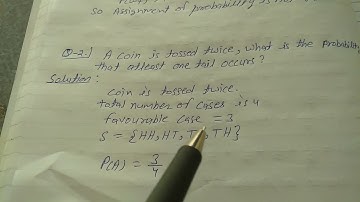 so Assignment of probability is not
Q-2:- A coin is tossed twice, what is the Probability
that atleast one tail occurs?
Solution:
coin is tossed twice.
total number of cases is 4
favourable case = 3
S = {HH, HT, TT, TH}
P(A) = 3/4